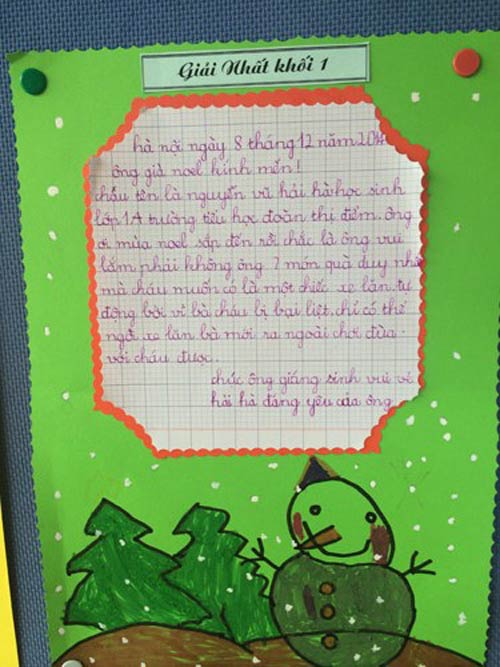 Giải Nhất khối 1
hà nội ngày 8 tháng 12 năm 2014
ông già noel kính mến!
cháu tên là nguyễn vũ hải hà học sinh
lớp 1A4 trường tiểu học đoàn thị điểm. ông
ơi mùa noel sắp đến rồi chắc là ông vui
lắm phải không ông? món quà duy nhất
mà cháu muốn có là một chiếc xe lăn tự
động bởi vì bà cháu bị bại liệt. chỉ có thể
ngồi xe lăn bà mới ra ngoài chơi đùa
với cháu được.
chúc ông giáng sinh vui vẻ
hải hà đáng yêu của ông